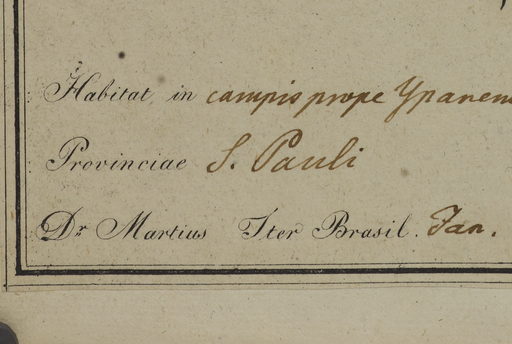 Habitat in campis prope Ypanem
Provinciae S. Pauli
Dr Martius Iter Brasil. Jan.